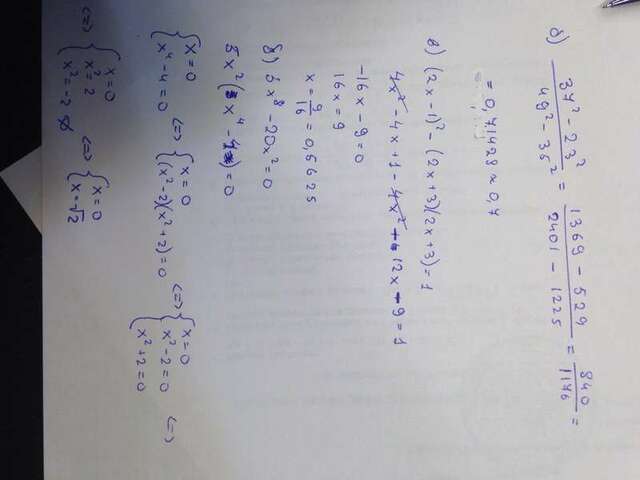 б) (34² - 23²)/(49² - 35²) = (1369 - 529)/(2401 - 1225) = 840/1176 =
= 0,71428 ≈ 0,7
в) (2x-1)² - (2x+3)(2x+3) = 1
4x² - 4x + 1 - 4x² - 12x - 9 = 1
-16x - 9 = 0
16x = 9
x = 9/16 = 0,5625
б) 5x⁸ - 20x² = 0
5x²(x⁴ - 4) = 0
{ x = 0 x⁴ - 4 = 0 <=> { x = 0 (x² - 2)(x² + 2) = 0 <=> { x = 0 x² - 2 = 0 x² + 2 = 0 <=>
<=> { x = 0 x² = 2 x² = -2 ∅ <=> { x = 0 x = √2